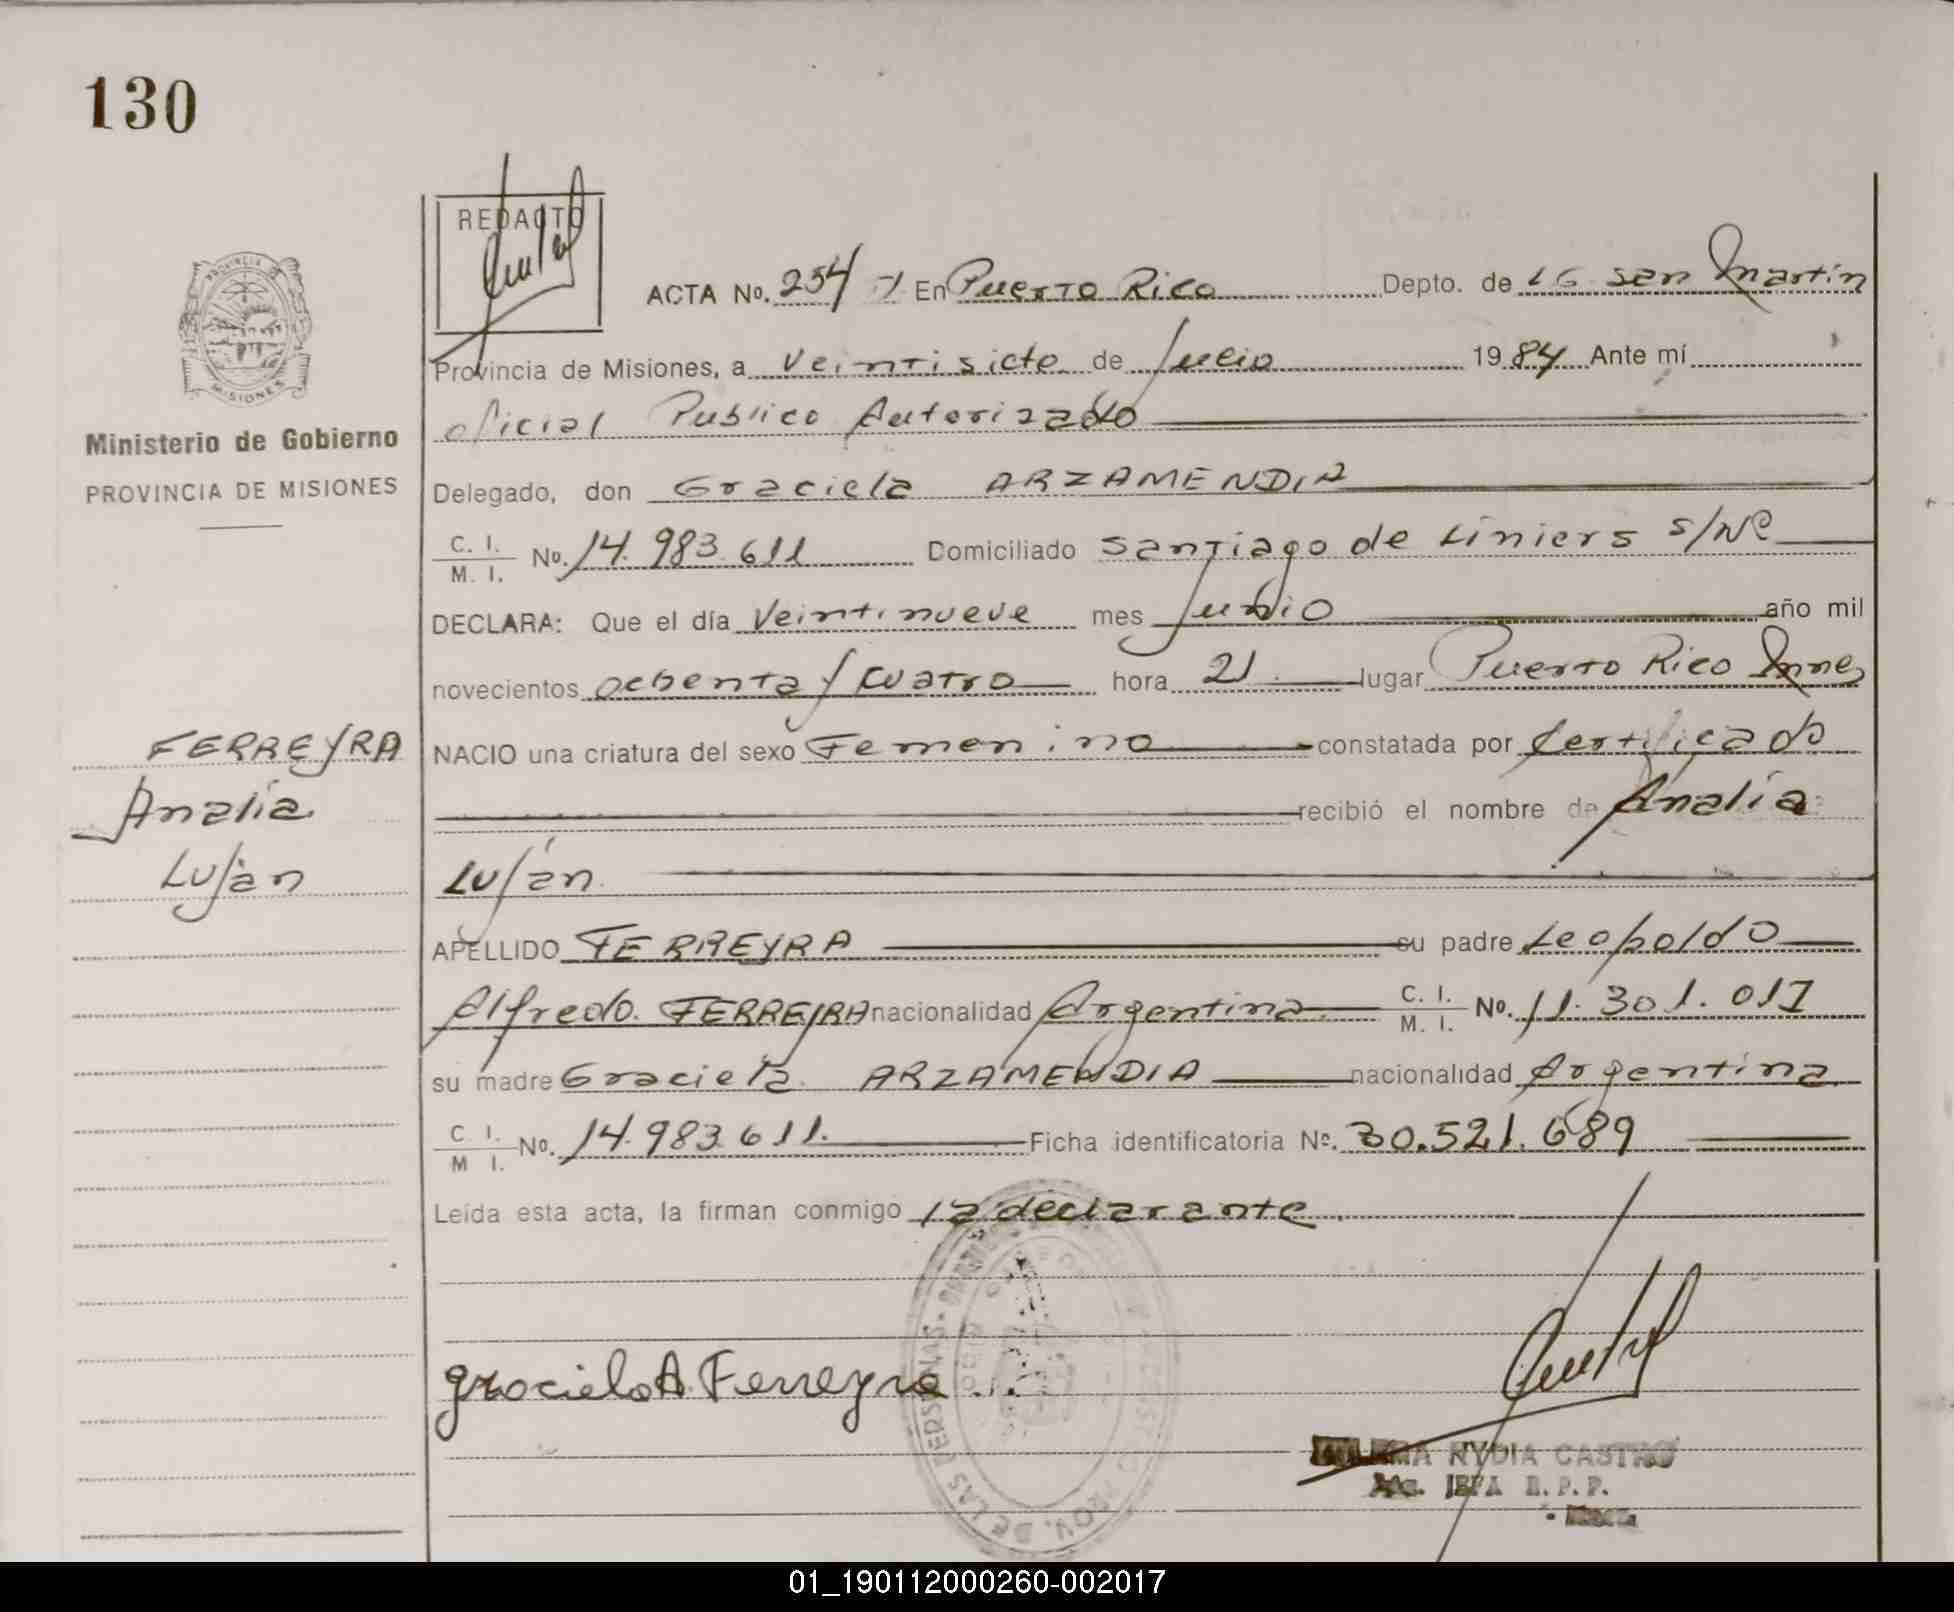 130
REDACTO
ACTA No. 254 En Puerto Rico Depto. de LG San Martín
Provincia de Misiones, a Veintisiete de Julio 1984 Ante mí
oficial Publico Autorizado
Ministerio de Gobierno
PROVINCIA DE MISIONES
Delegado, don Graciela ARZAMENDIA
C. I.
M. I. No. 14.983.611 Domiciliado Santiago de Liniers S/Nº
DECLARA: Que el día Veintinueve mes Junio año mil
novecientos ochenta y cuatro hora 21. lugar Puerto Rico Mnes
FERREYRA
Analía
Luján
NACIO una criatura del sexo Femenino constatada por Certificado
recibió el nombre de Analía
Luján.
APELLIDO FERREYRA su padre Leopoldo
Alfredo. FERREYRA nacionalidad Argentina C. I.
M. I. No. 11.301.017
su madre Graciela ARZAMENDIA nacionalidad Argentina
C. I.
M. I. No. 14.983.611. Ficha identificatoria Nº. 30.521.689
Leída esta acta, la firman conmigo la declarante.
graciela A. Ferreyra
NYDIA CASTRO
JEFA R.P.P.
DE LAS PERSONAS
PROV. DE
01_190112000260-002017